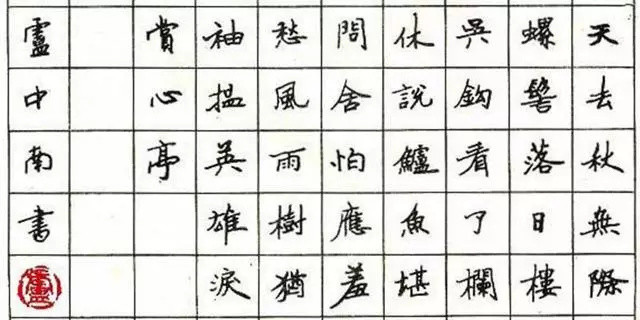 天去秋無際
螺髻落日樓
吳鈎看了欄
休說鱸魚堪
問舍怕應羞
愁風雨樹猶
袖搵英雄淚
賞心亭
盧中南書